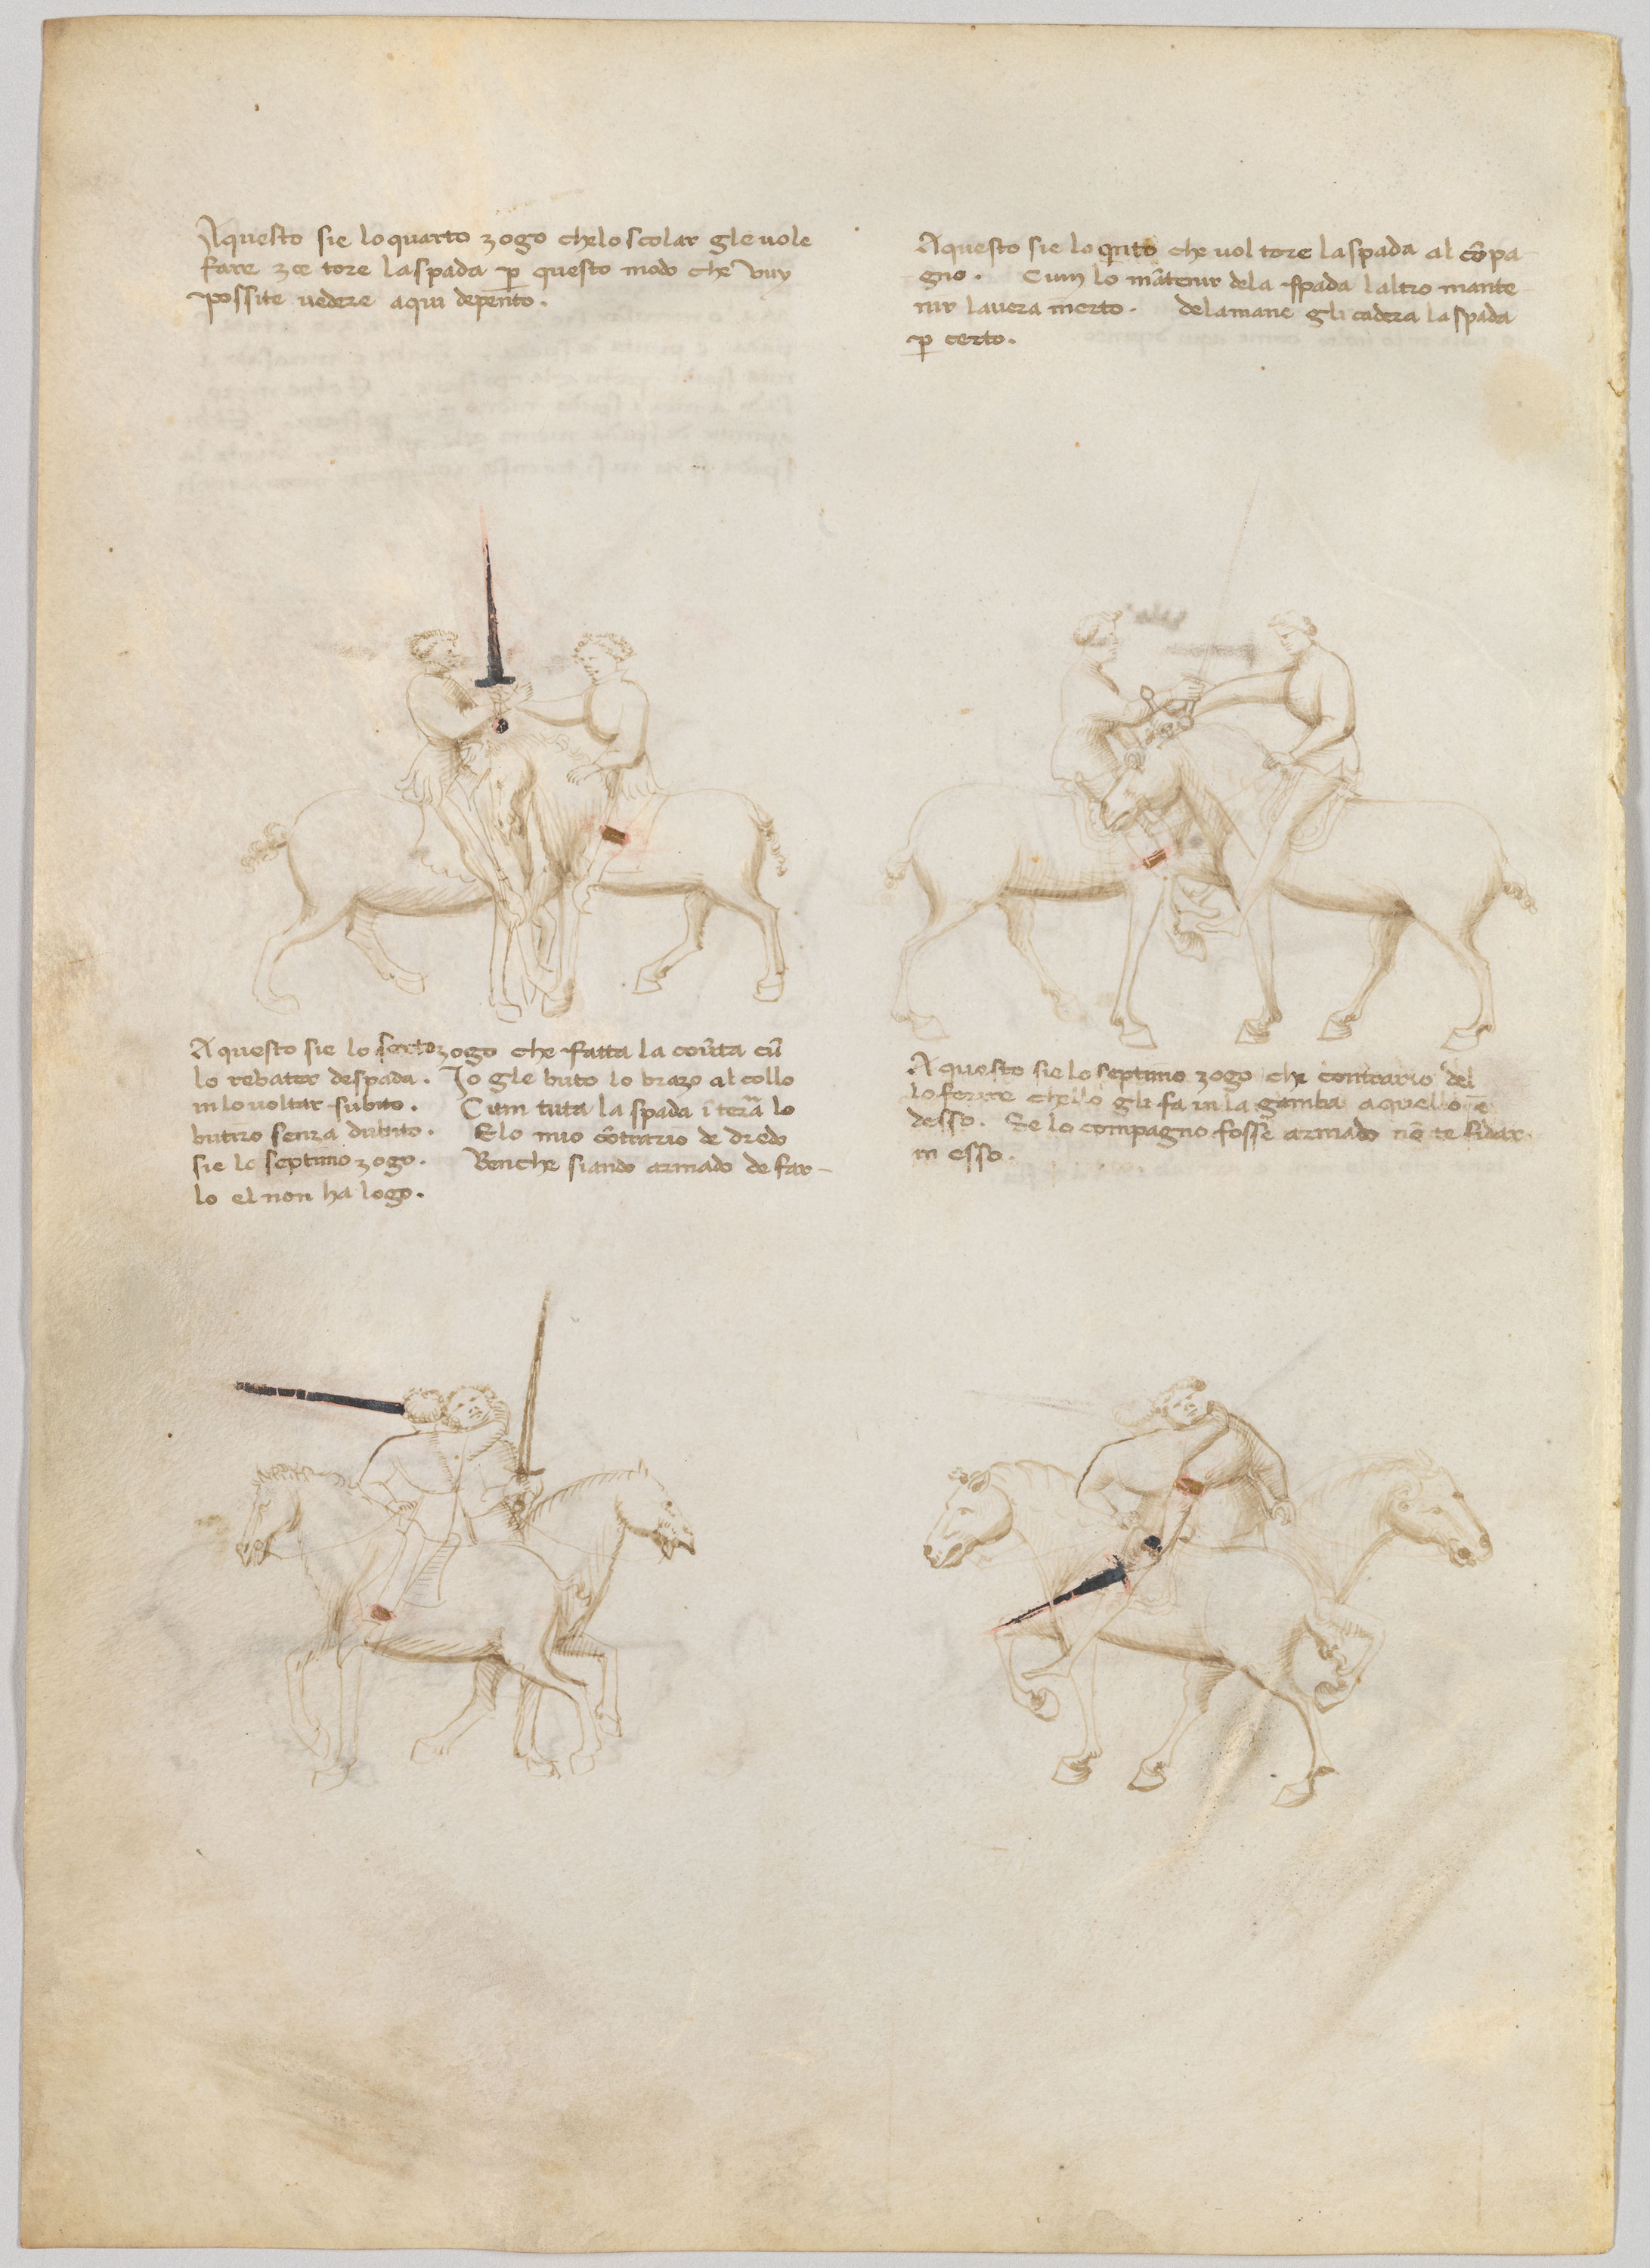 Aquesto sie lo quarto zogo che lo scolar gle uole
fare zoe tore la spada p̲ questo modo che vuy
possite uedere aqui depento.
Aquesto sie lo qnto che vol tore la spada al cōpa
gno. Cum lo mātenir dela spada laltro mante
nir lauera merto. dela mane gli cadera la spada
p̲ certo.
Aquesto sie lo sexto zogo che fatta la couta cū
lo rebater de spada. Io gle buto lo brazo al collo
in lo uoltar subito. Cum tuta la spada ī tera lo
butiro senza dubito. E lo mio cōtrario de dredo
sie lo septimo zogo. Benche siando armado de far-
lo el non ha logo.
Aquesto sie lo septimo zogo che contrario del
lo ferire chello gli fa in la gamba aquello ē
desso. Se lo compagno fosse armado nō te fidar
in esso.